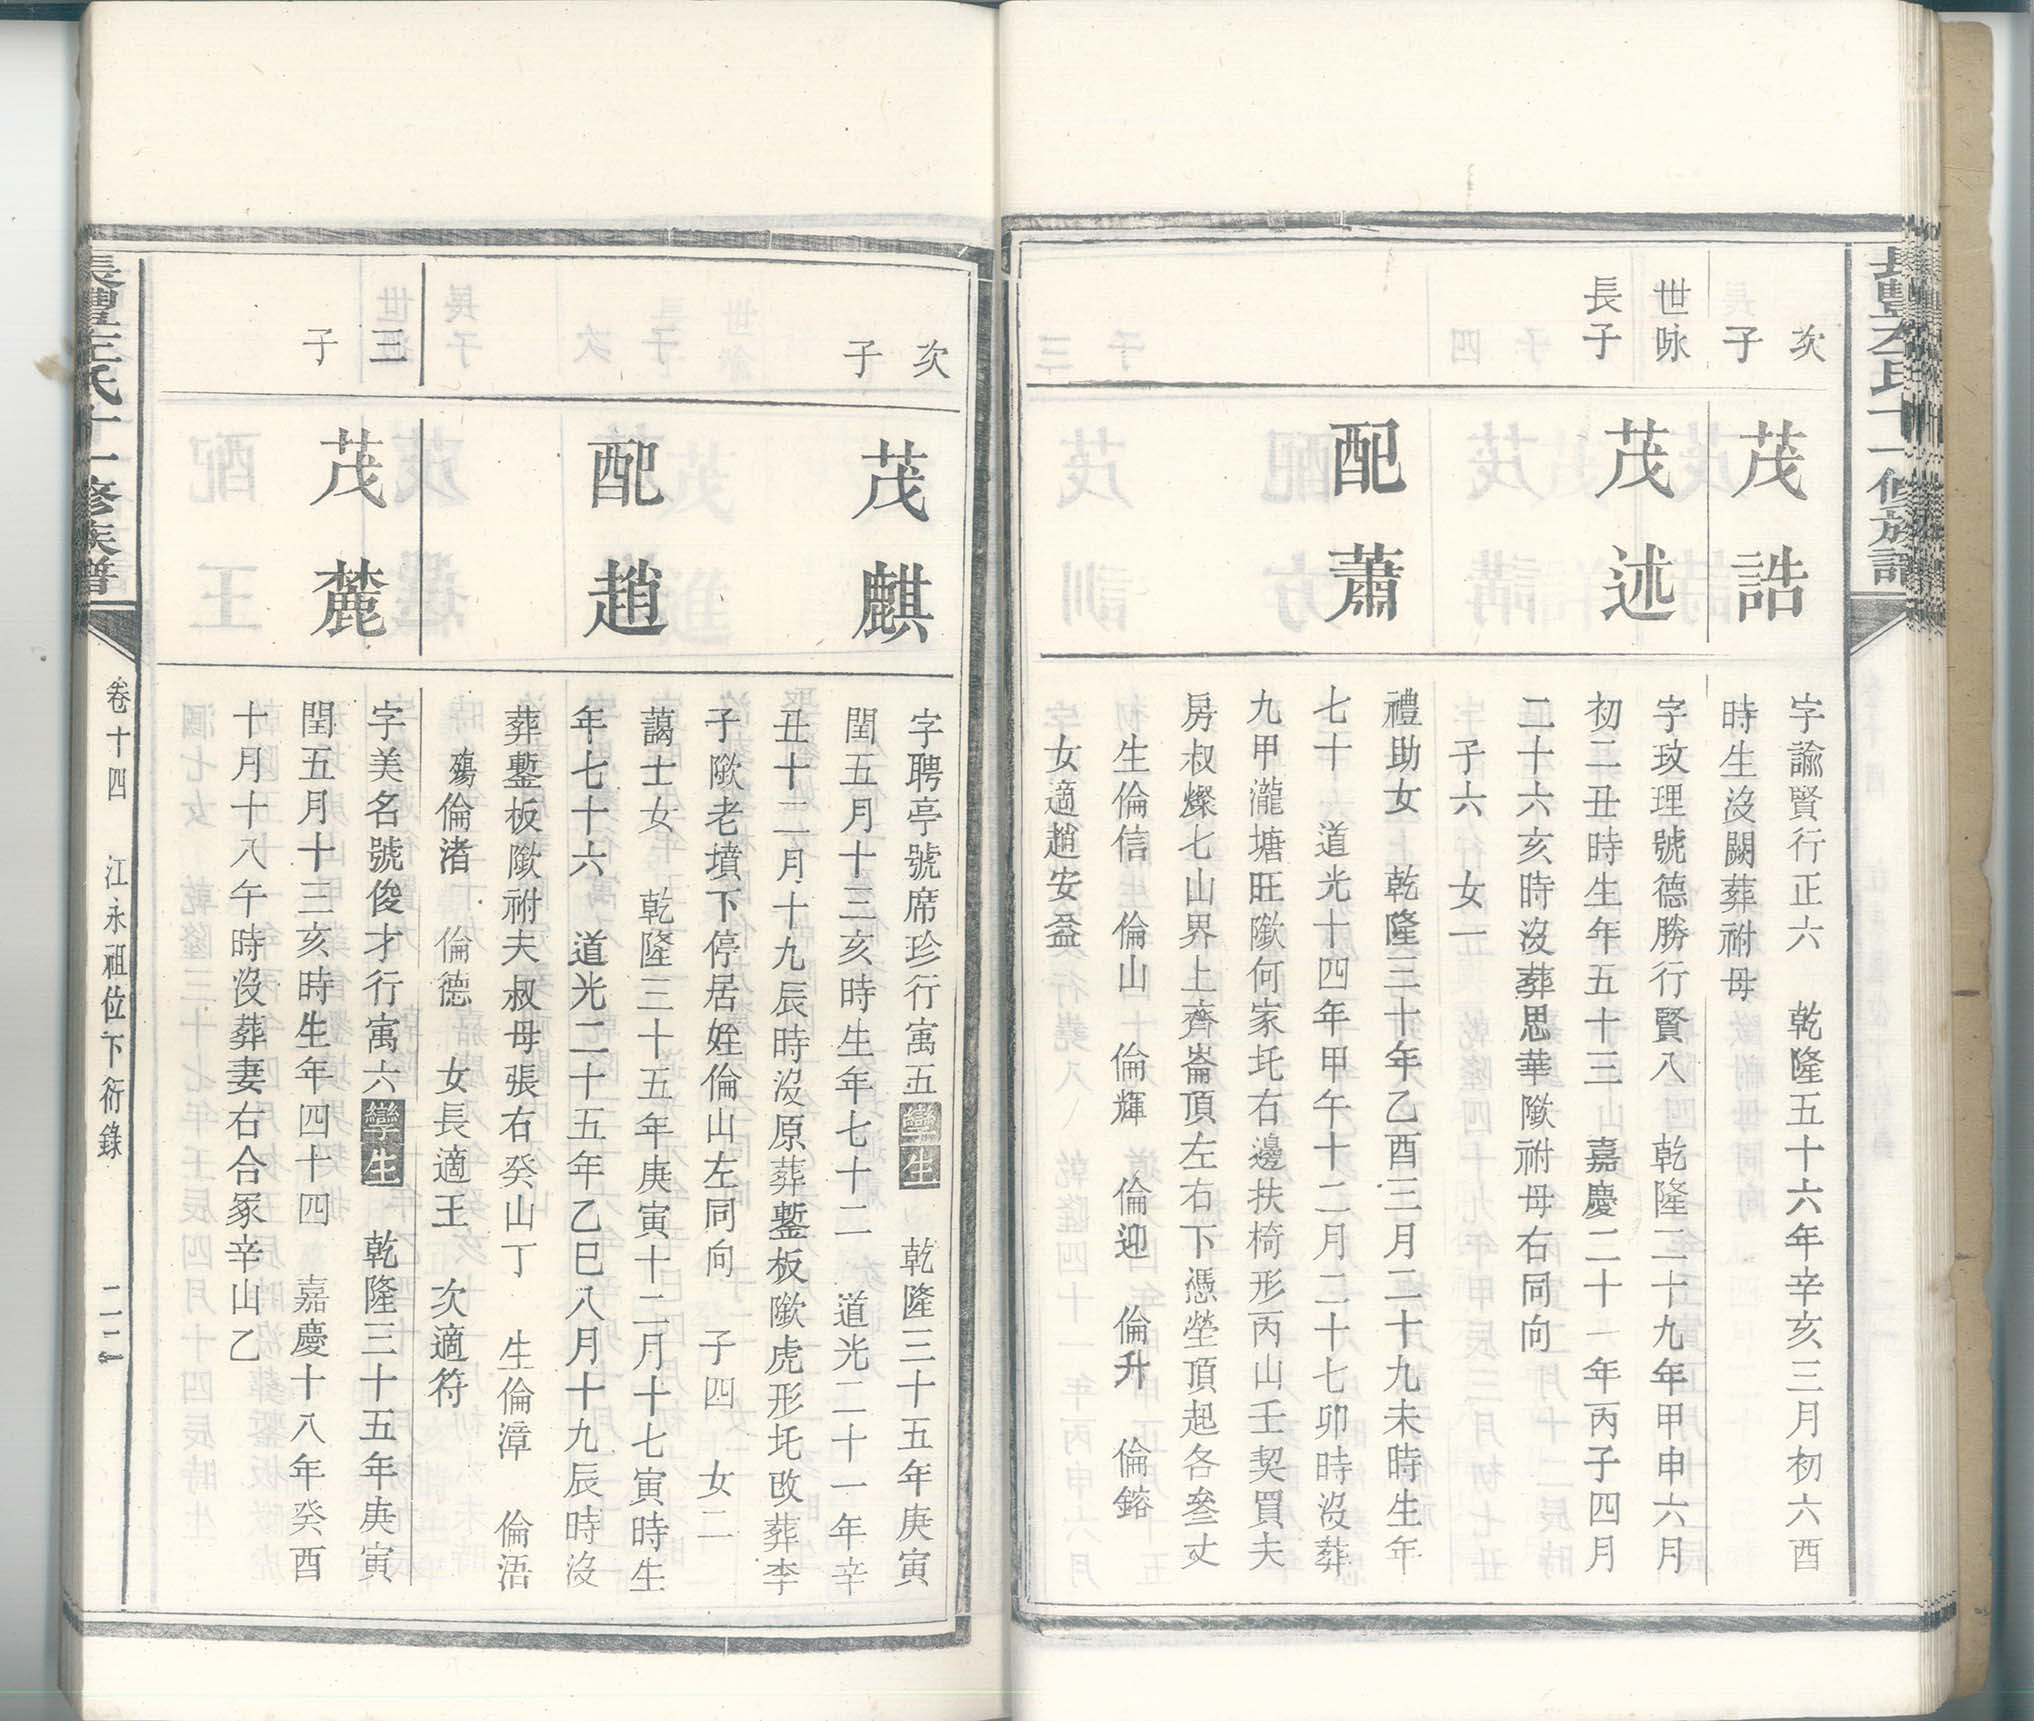 次子
茂誥
字諭賢行正六　乾隆五十六年辛亥三月初六酉
時生沒闕葬祔母
世咏
長子
茂述
字玫理號德勝行賢八　乾隆二十九年甲申六月
初二丑時生年五十三　嘉慶二十一年丙子四月
二十六亥時沒葬思華歘祔母右同向
子六　女一
配蕭
禮助女　乾隆三十年乙酉三月二十九未時生年
七十　道光十四年甲午十二月二十七卯時沒葬
九甲瀧塘旺歘何家圫右邊扶椅形丙山壬契買夫
房叔燦七山界上齊崙頂左右下憑塋頂起各叄丈
生倫信　倫山　倫輝　倫迎　倫升　倫鎔
女適趙安益
次子
茂麒
字聘亭號席珍行寓五孿生　乾隆三十五年庚寅
閏五月十三亥時生年七十二　道光二十一年辛
丑十二月十九辰時沒原葬鏨板歘虎形圫改葬李
子歘老墳下停居姪倫山左同向　子四　女二
配趙
藹士女　乾隆三十五年庚寅十二月十七寅時生
年七十六　道光二十五年乙巳八月十九辰時沒
葬鏨板歘祔夫叔母張右癸山丁　生倫漳　倫浯
殤倫渚　倫德　女長適王　次適符
三子
茂麓
字美名號俊才行寓六孿生　乾隆三十五年庚寅
閏五月十三亥時生年四十四　嘉慶十八年癸酉
十月十八午時沒葬妻右合冢辛山乙
長豐左氏十一修族譜
卷十四　江永祖位下衍錄　二二